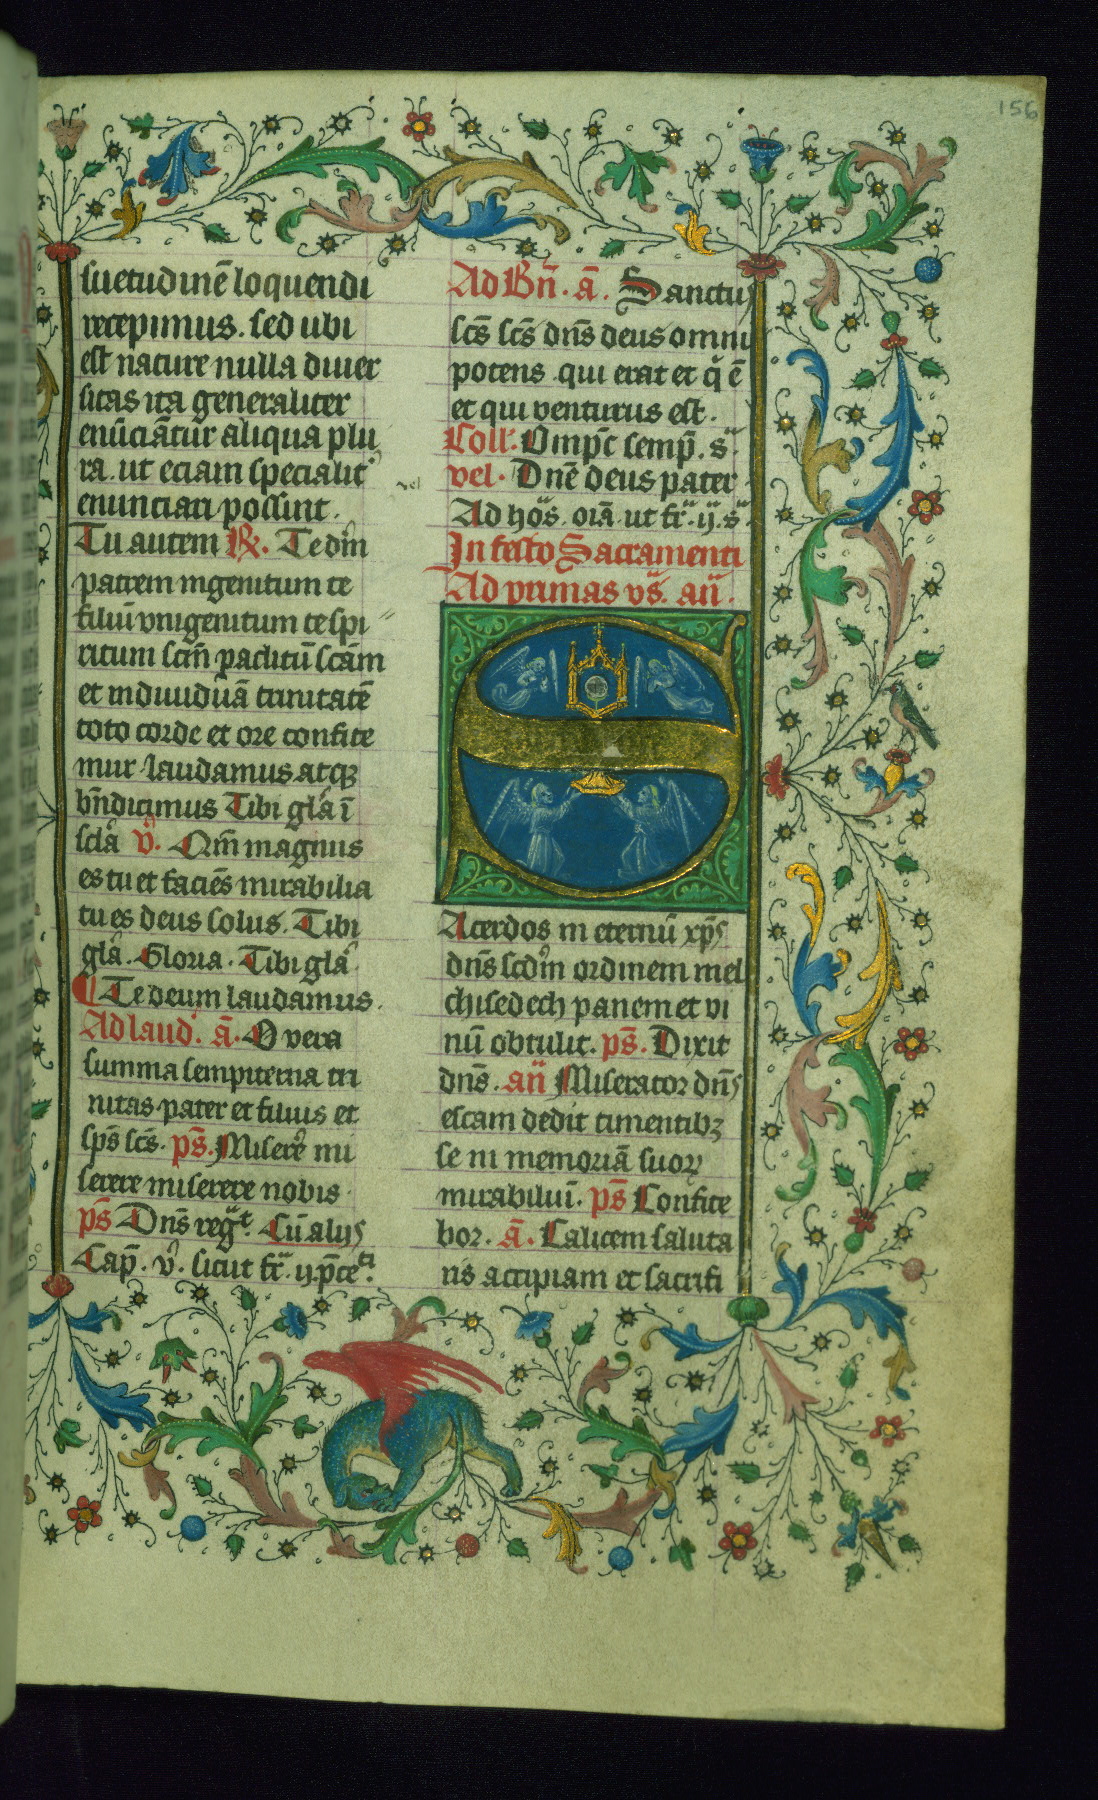 156
suetudinē loquendi
recepimus. sed ubi
est nature nulla diuer
sitas ita generaliter
enūciātur aliqua plu
ra. ut eciam specialit᷒
enunciari possint.
Tu autem ℟. Te dm̄
patrem ingenitum te
filiū vnigenitum te spi
ritum scm̄ paclitū scām
et indiuiduā trinitatē
toto corde et ore confite
mur laudamus atqꝫ
bn̄dicimus Tibi glā ī
sclā v̄. Qm̄ magnus
es tu et faciēs mirabilia
tu es deus solus. Tibi
glā. Gloria. Tibi glā
Te deum laudamus.
Ad laud. ā. O vera
summa sempiterna tri
nitas pater et filius et
sp̄s sc̄s. ps̄. Miserē mi
serere miserere nobis.
ps̄ Dn̄s reg᷑t. Cū alijs
Cap̄. v᷒. sicut fr̄. ij. p̄ce
Ad Bn̄. ā. Sanctus
vel
sc̄s sc̄s dn̄s deus omni
potens. qui erat et q̄ ē
et qui venturus est.
Coll᷒. Omp̄c semp̄. s᷑.
vel. Dn̄e deus pater
Ad ho᷑s. oīa ut fr᷑. ij. s᷑.
In festo Sacramenti
Ad primas vs᷑. an̄.
S
Acerdos in eternū xp̄s
dn̄s scdm̄ ordinem mel
chisedech panem et vi
nū obtulit. ps̄. Dixit
dn̄s. an̄ Miserator dn̄s
escam dedit timentibꝫ
se in memoriā suoꝝ
mirabiliuī. ps̄ Confite
bor. ā. Calicem saluta
ris accipiam et sacrifi